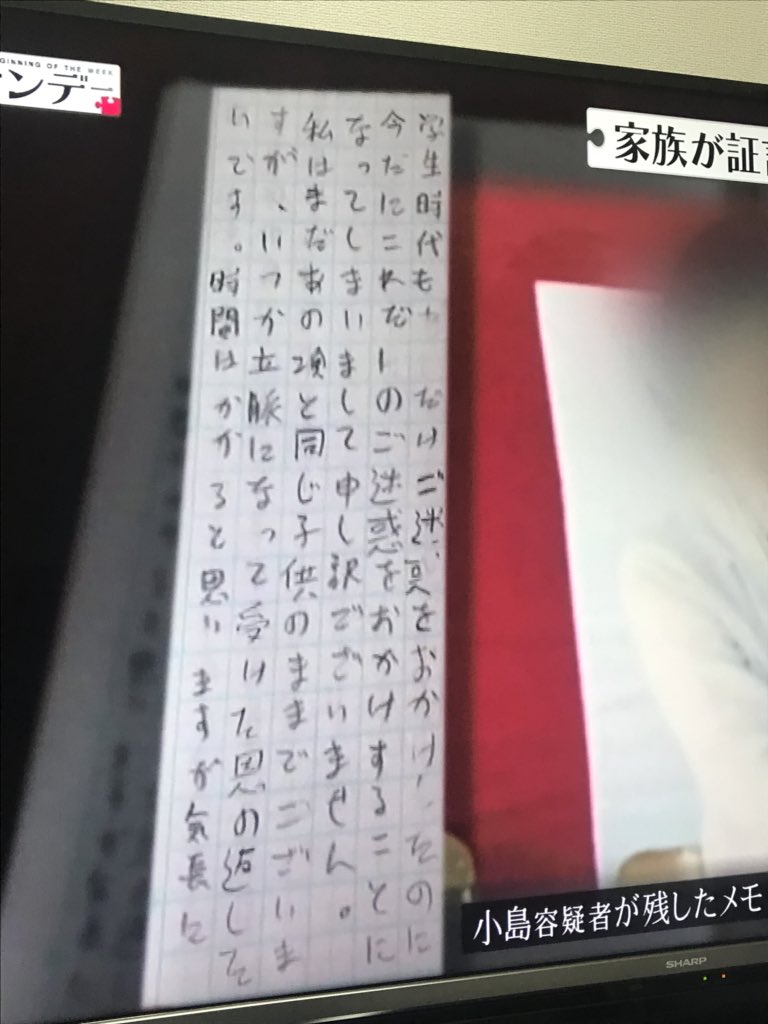 GINNING OF THE WEEK
ンデー
家族が証
学生時代も だけご迷惑をおかけ たのに
今だにこれだ のご迷惑をおかけすることに
なってしまいまして申し訳ございません。
私はまだあの頃と同じ子供のままでございま
すが、いつか立脈になって受けた恩の返した
いです。時間はかかると思いますが気長に
小島容疑者が残したメモ
SHARP